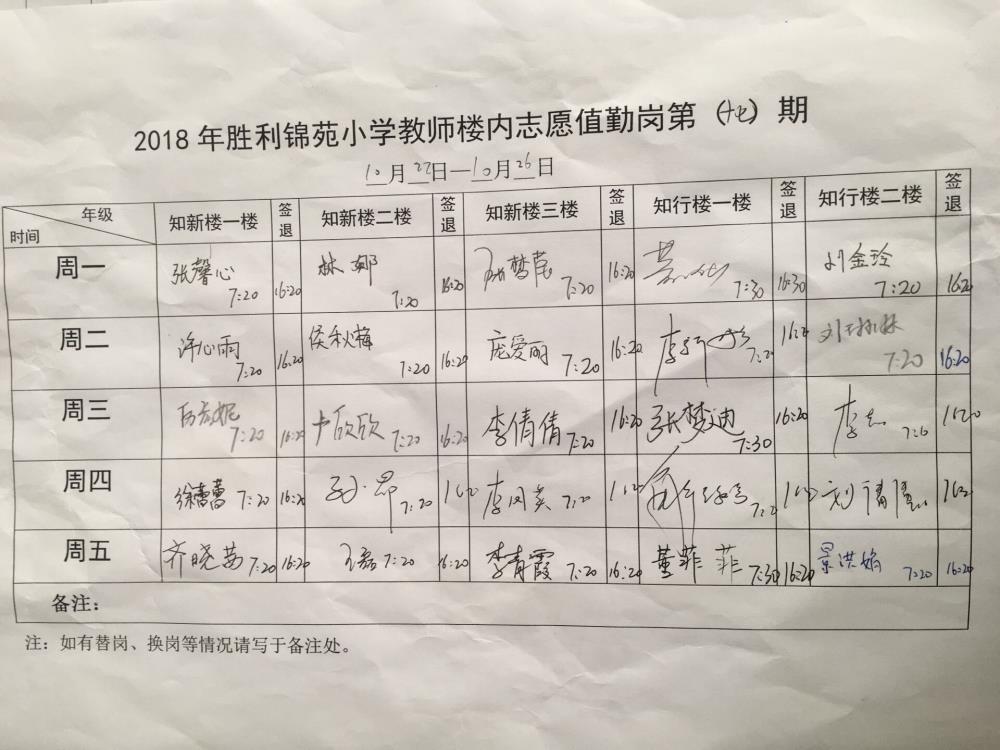 2018年胜利锦苑小学教师楼内志愿值勤岗第（十七）期
10月22日—10月26日
年级 时间 知新楼一楼 签退 知新楼二楼 签退 知新楼三楼 签退 知行楼一楼 签退 知行楼二楼 签退
周一 张馨心 7:20 16:20 林娜 7:20 16:20 7:20 16:20 7:30 16:30 刘金玲 7:20 16:20
周二 许心雨 7:20 16:20 侯秋梅 7:20 16:20 庞爱丽 7:20 16:20 7:20 7:20 16:20
周三 7:20 16:20 卢欣欣 7:20 16:20 李倩倩 7:20 16:20 张梦迪 7:30 16:20
周四 徐蕾蕾 7:20 16:20 孙昂 7:20 7:20
周五 齐晓茜 7:20 16:20 王磊 7:20 16:20 李青霞 7:20 16:20 董菲菲 7:30 16:20 景洪娟 7:20 16:20
备注：
注：如有替岗、换岗等情况请写于备注处。